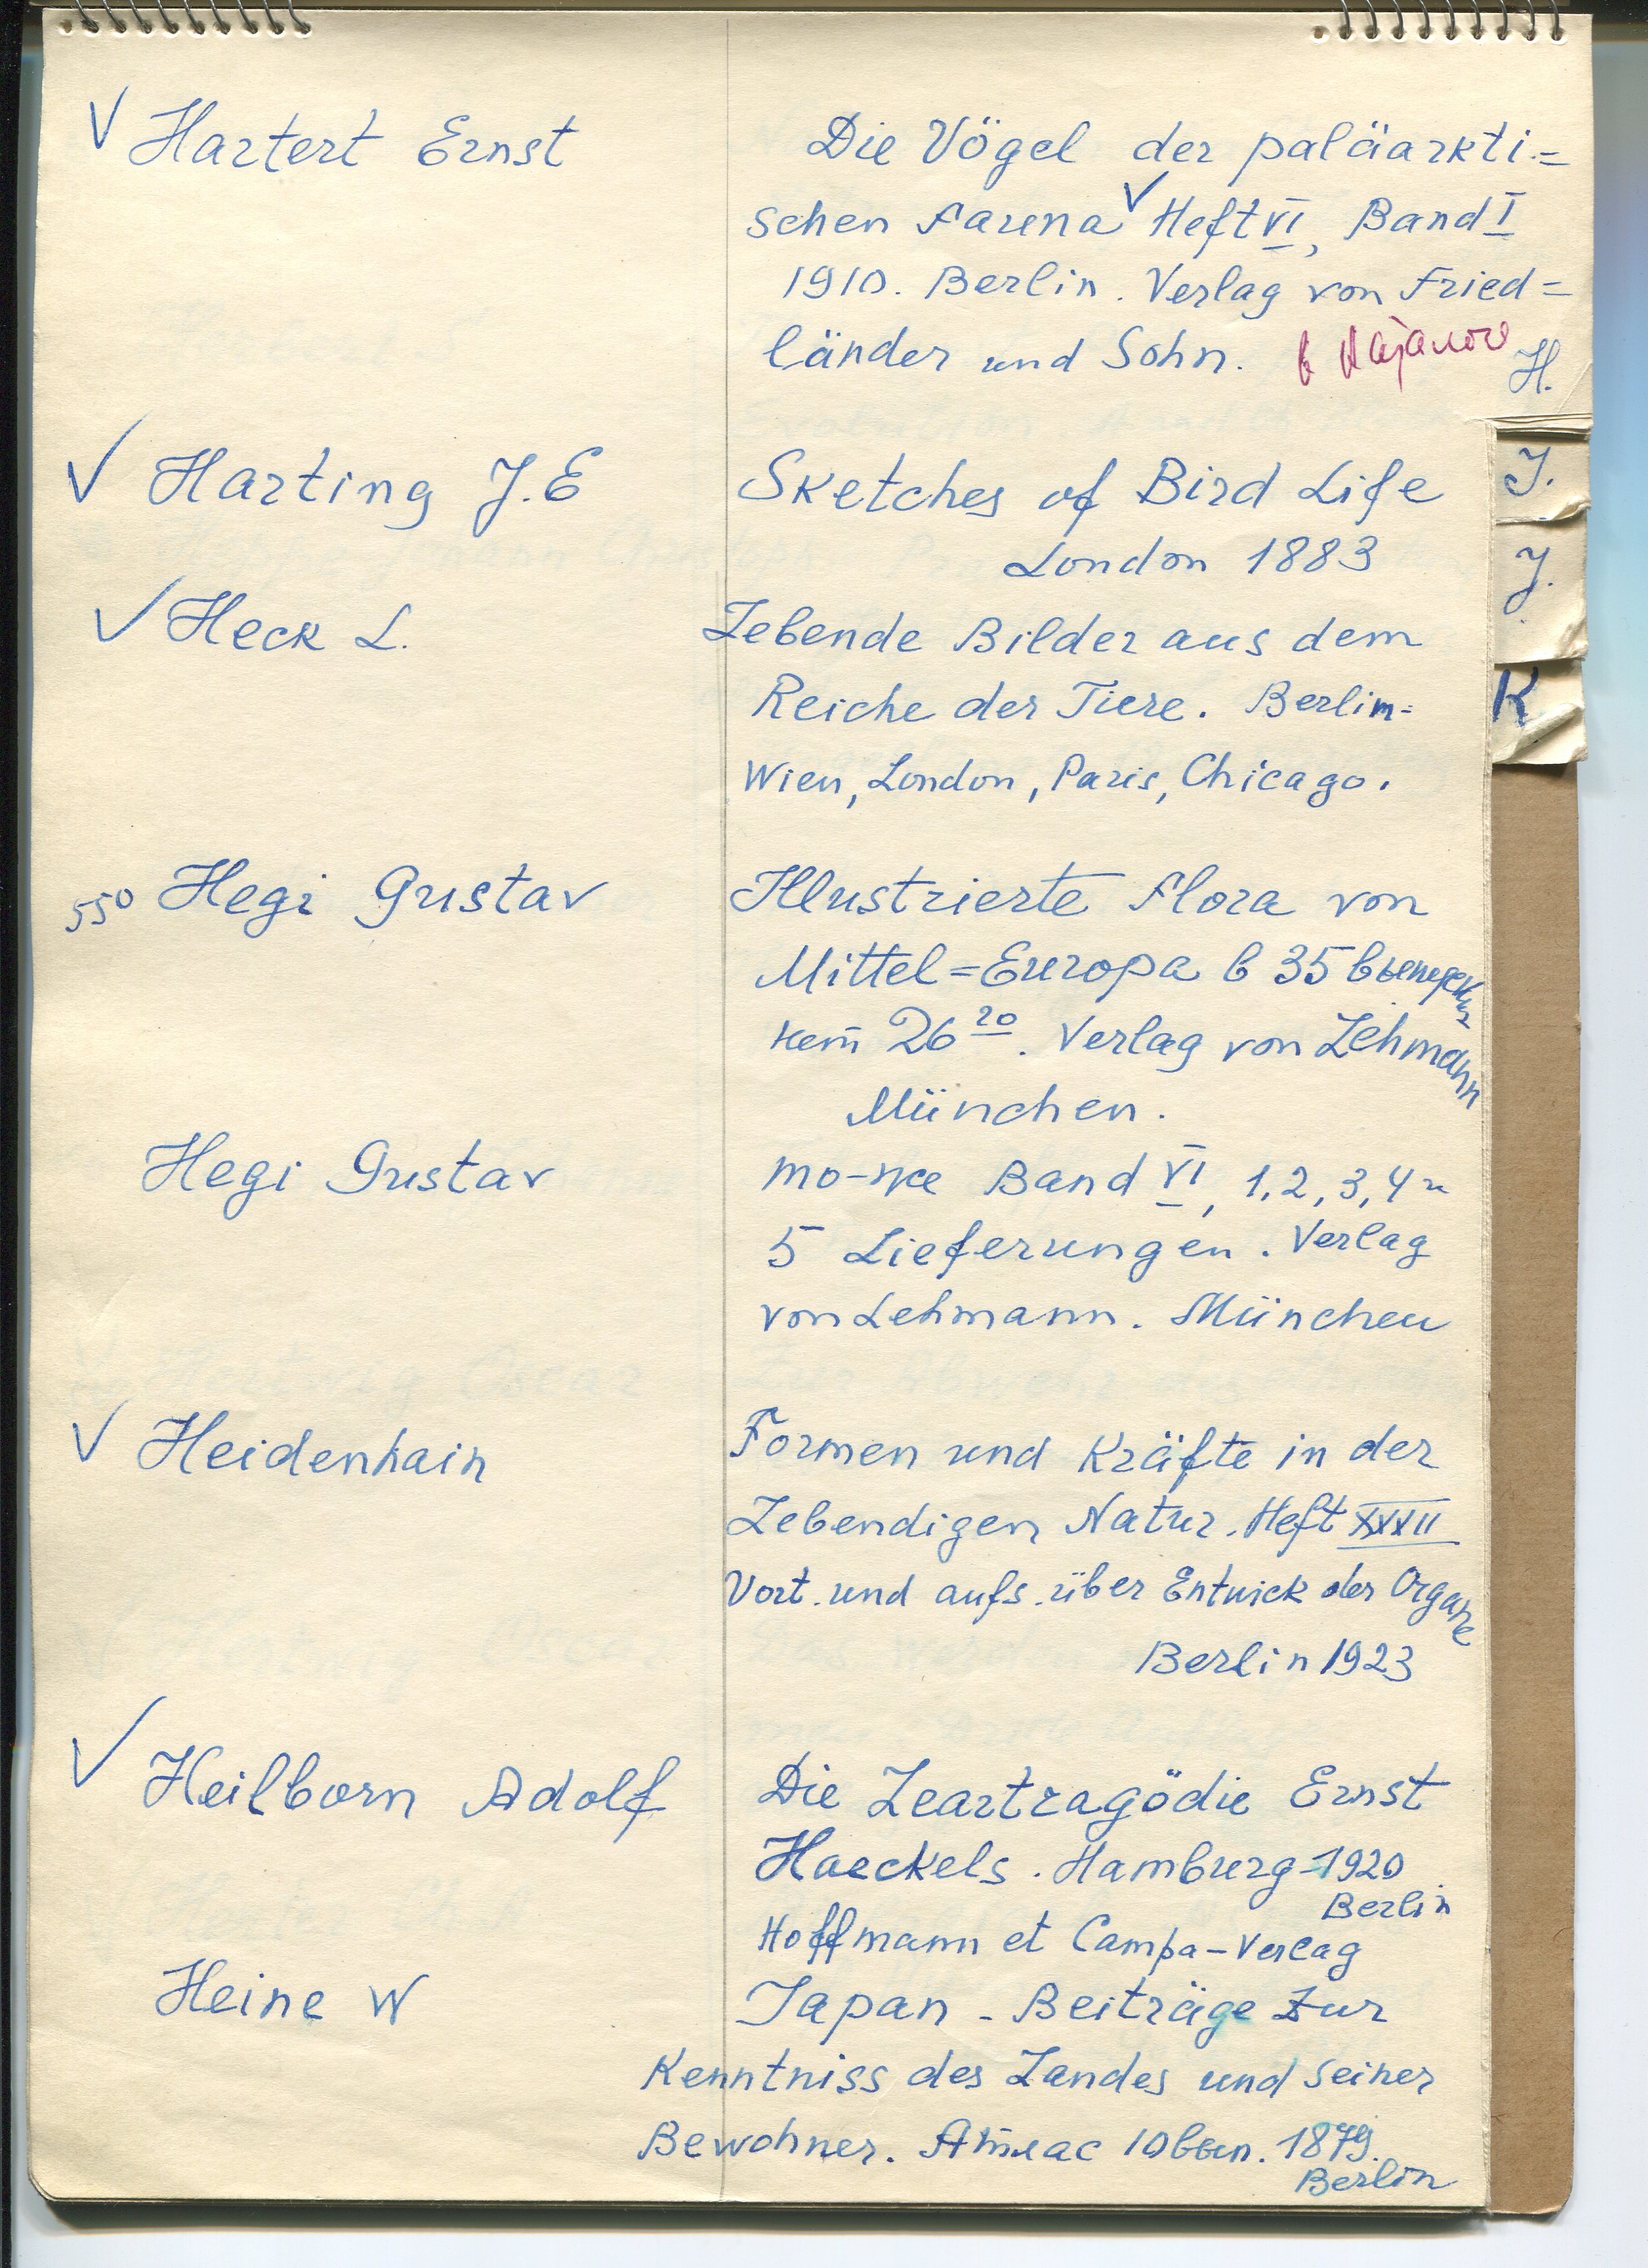 V Hartert Ernst
Die Vögel der paläarkti=
schen Fauna V Heft VI, Band I
1910. Berlin. Verlag von Fried=
länder und Sohn. в
H.
V Harting J.E
Sketches of Bird Life
London 1883
I.
J.
K
V Heck L.
Lebende Bilder aus dem
Reiche der Tiere. Berlin=
Wien, London, Paris, Chicago.
550 Hegi Gustav
Illustrierte Flora von
Mittel=Europa в 35
26 20. Verlag von Lehmann
München.
Hegi Gustav
то-же Band VI, 1, 2, 3, 4 и
5 Lieferungen. Verlag
von Lehmann. München
V Heidenhain
Formen und Kräfte in der
Lebendigen Natur. Heft XXXII
Vort. und aufs. über Entwick der Organe
Berlin 1923
V Heilborn Adolf
Die Leartragödie Ernst
Haeckels. Hamburg-1920
Berlin
Hoffmann et Campa-Verlag
Heine W
Japan - Beiträge zur
Kenntniss des Landes und seiner
Bewohner. Атлас 10 вып. 1879.
Berlin